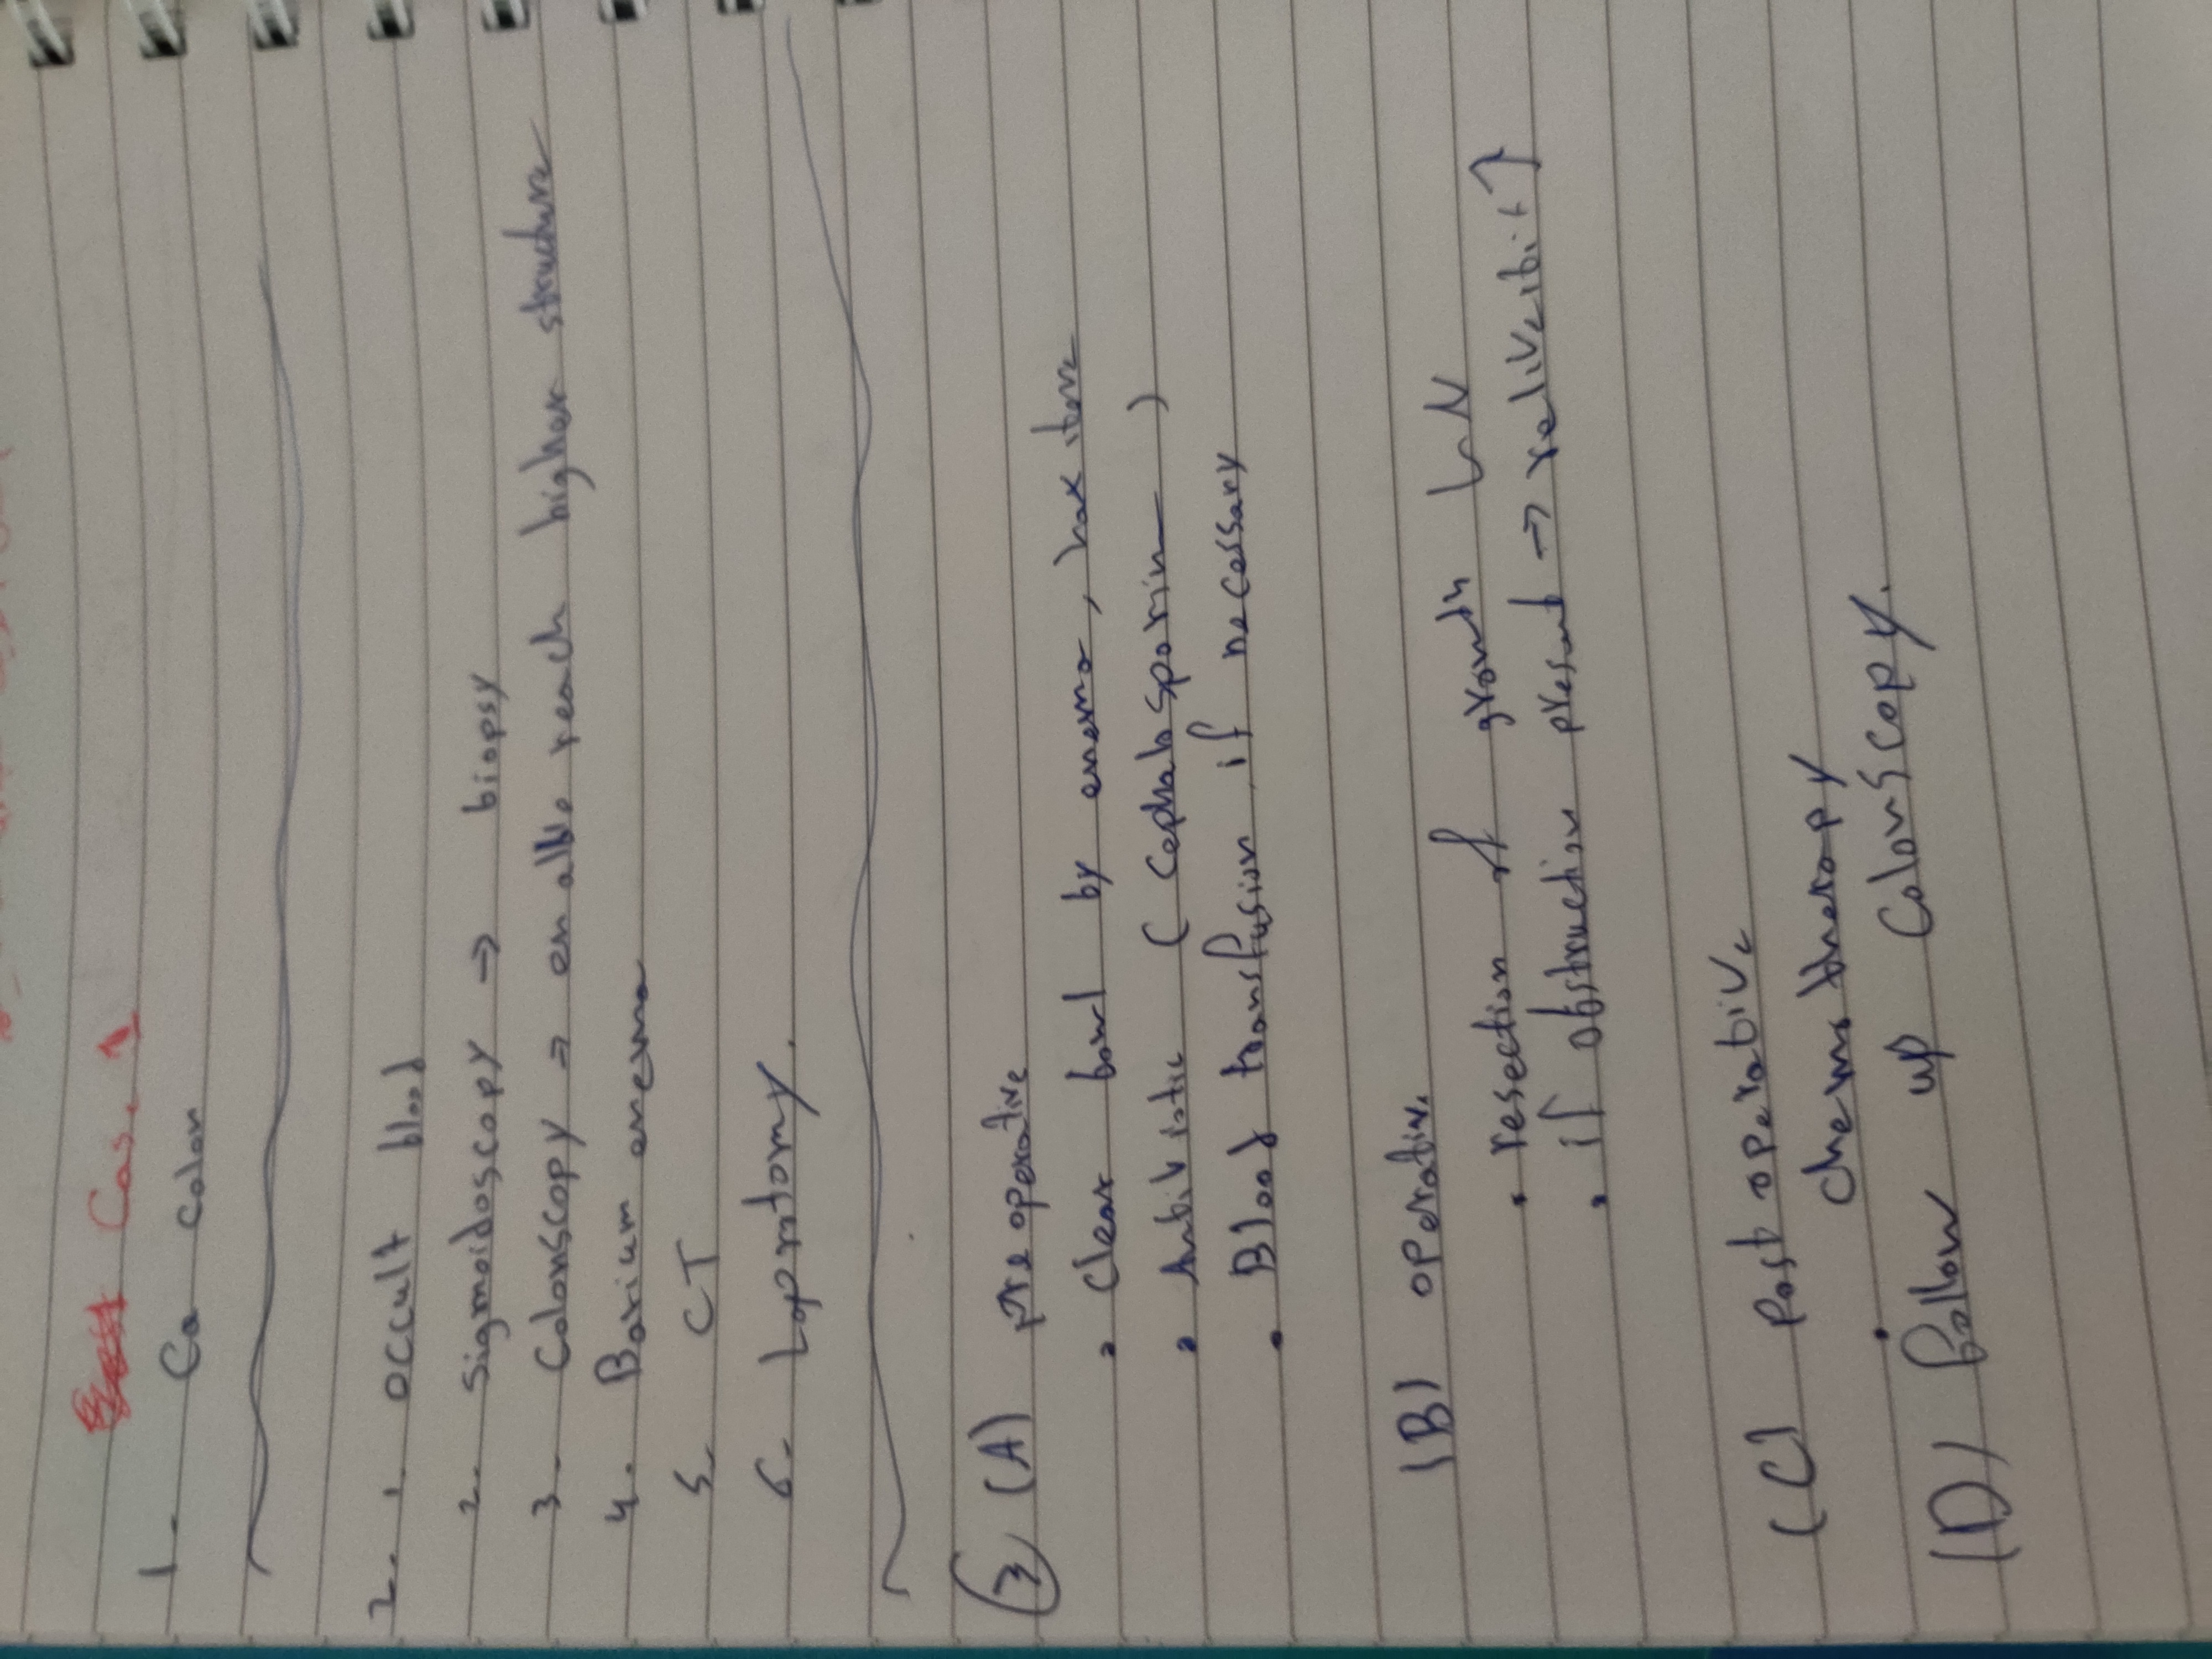 Case 1
1- Ca colon
2- 1. occult blood
2- Sigmoidoscopy → biopsy
3- Colonscopy → enable reach higher structure
4. Barium enema
5- CT
6- Loprotomy.
3 (A) pre operative
• Clear bowl by enema, laxitave
• Antibiotic (Cephalosporin)
• Blood transfusion if necessary
(B) operative
• resection of growth LN
• if obstruction present → relive it
(C) Post operative
chemotherapy
(D) follow up Colonscopy.